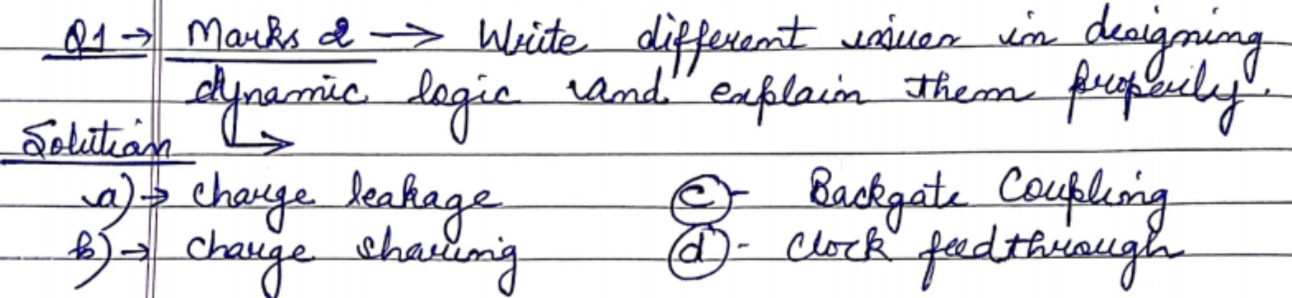 Q1 → Marks 2 → Write different issues in designing
dynamic logic and explain them properly.
Solution ↳
a) → charge leakage (c) - Backgate Coupling
b) → charge sharing (d) - Clock feedthrough